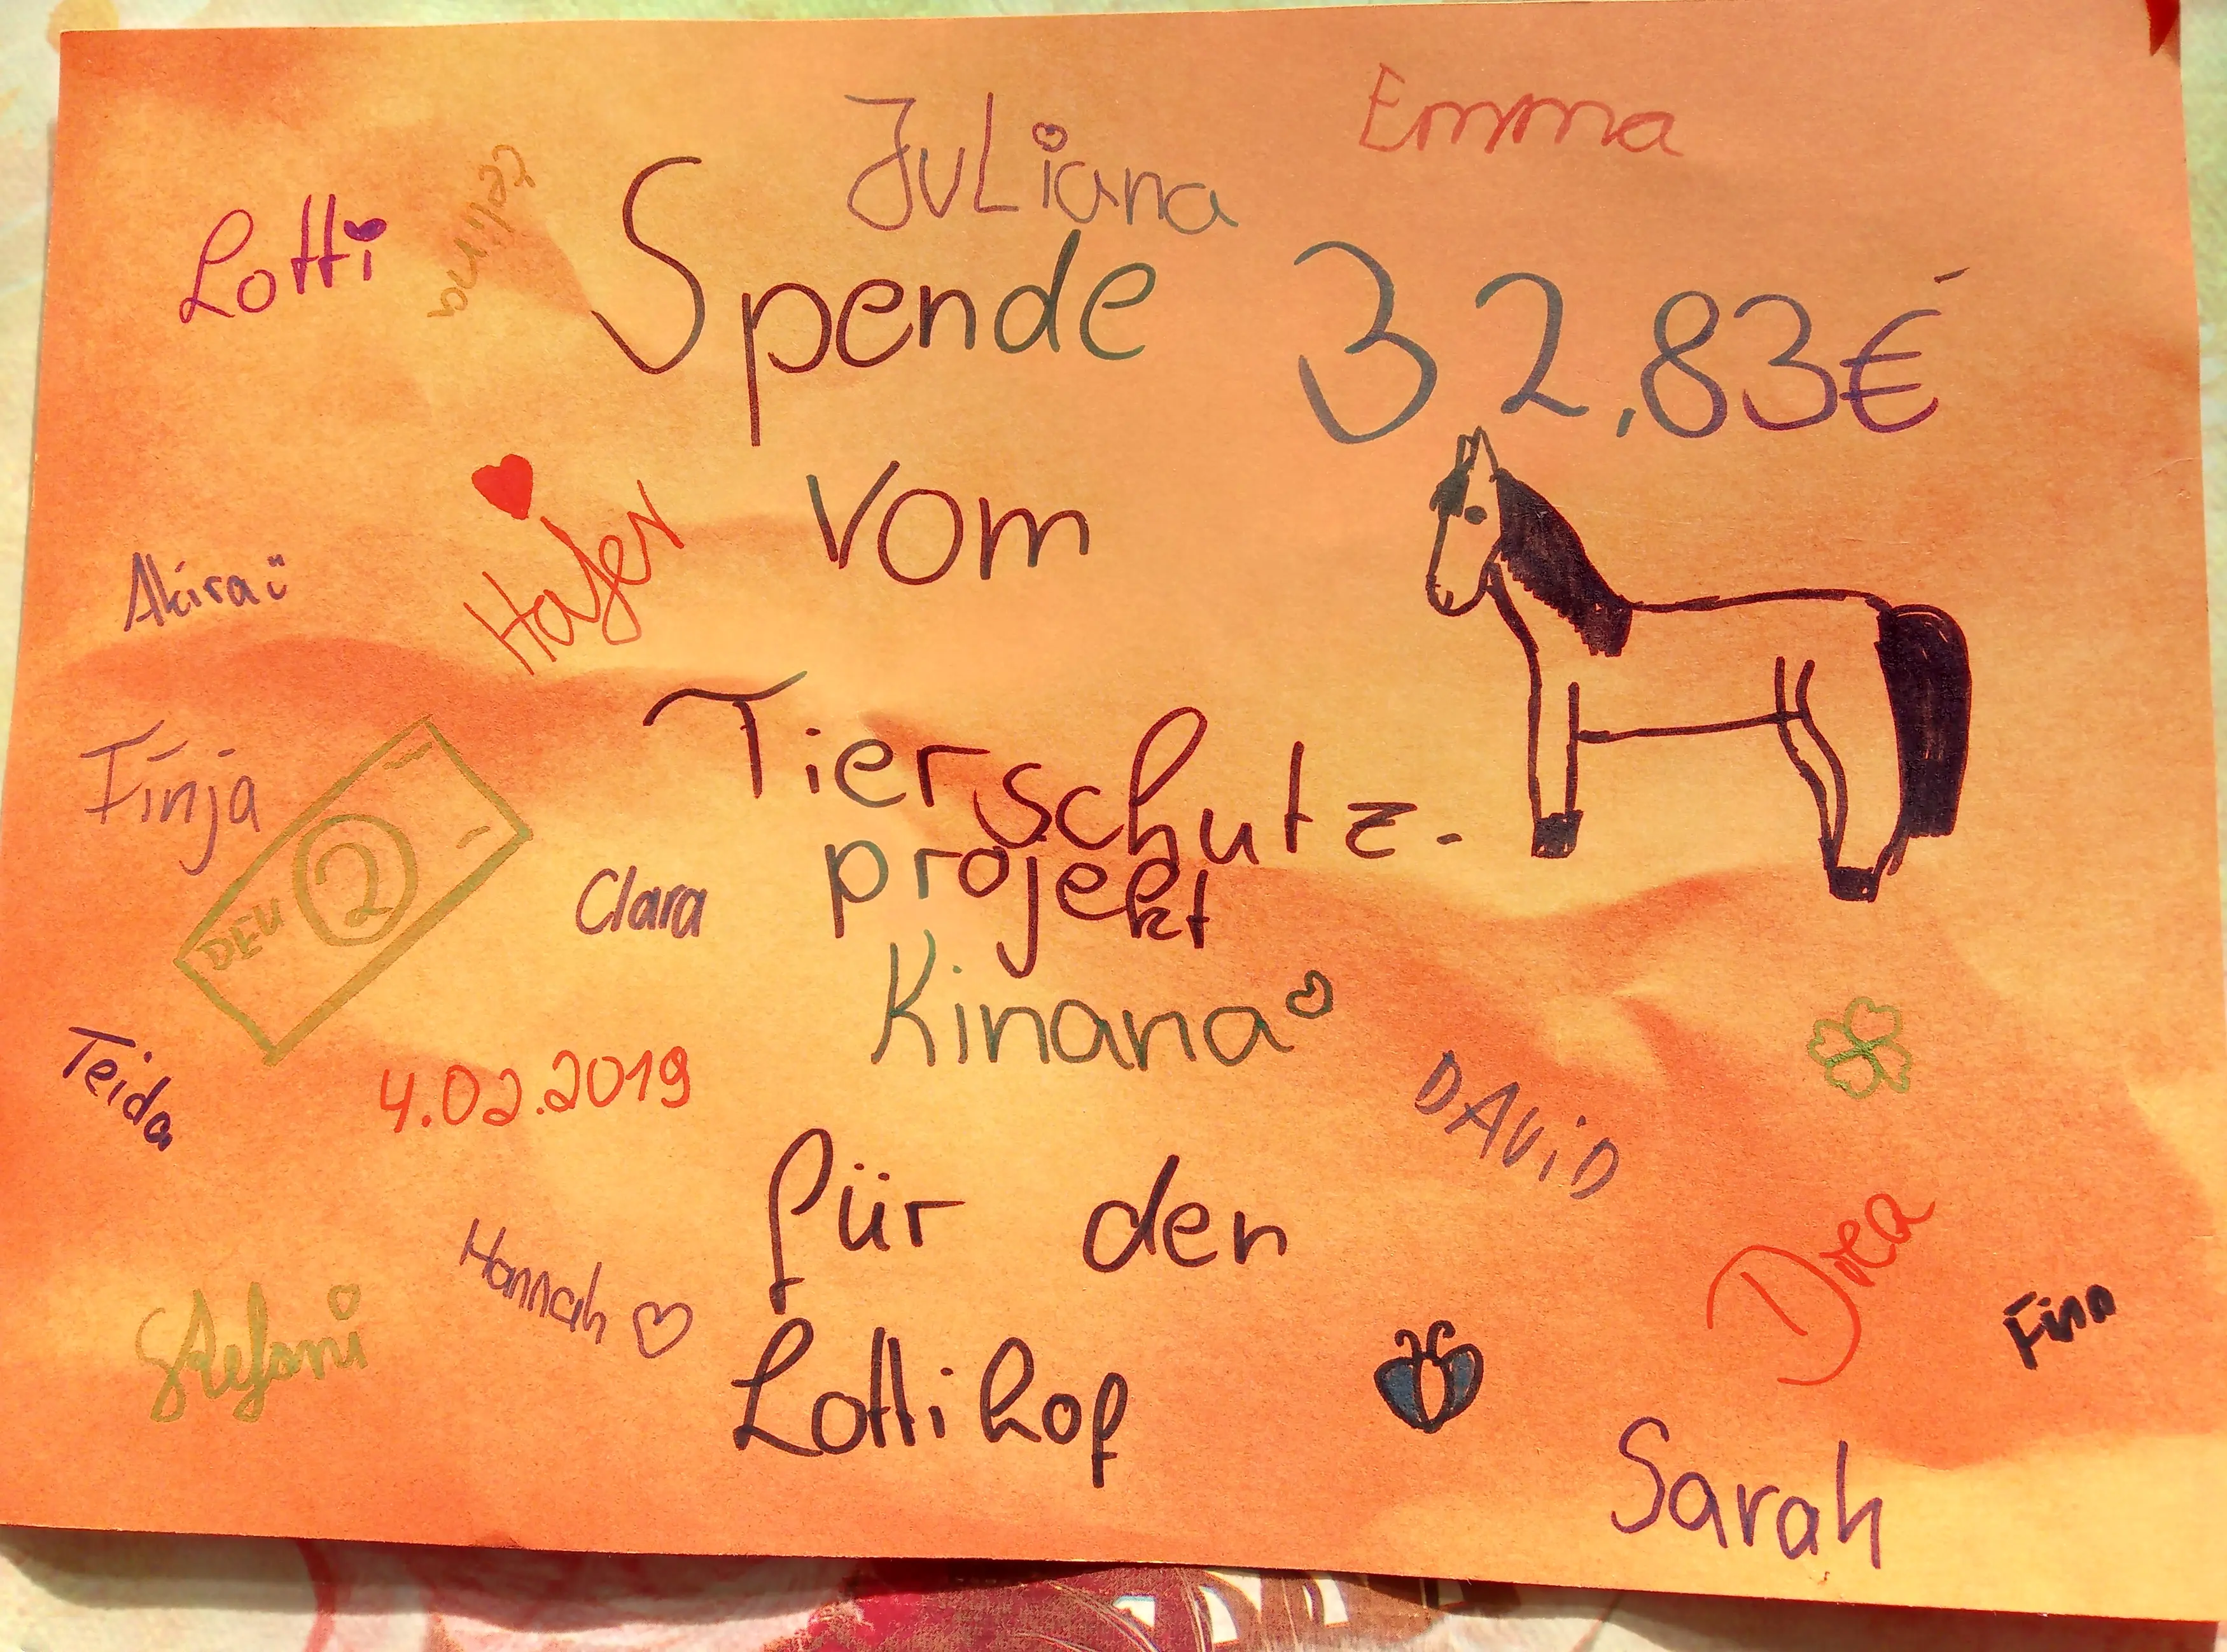 Emma
Juliana
Lotti
Celina
Spende 32,83€
Hafer
vom
Akira
Tierschutz-
Finja
projekt
Clara
DEU 2
Kinana
Teida
4.02.2019
DAViD
für den
Hannah
Drea
Finn
Stefani
Lottihof
Sarah